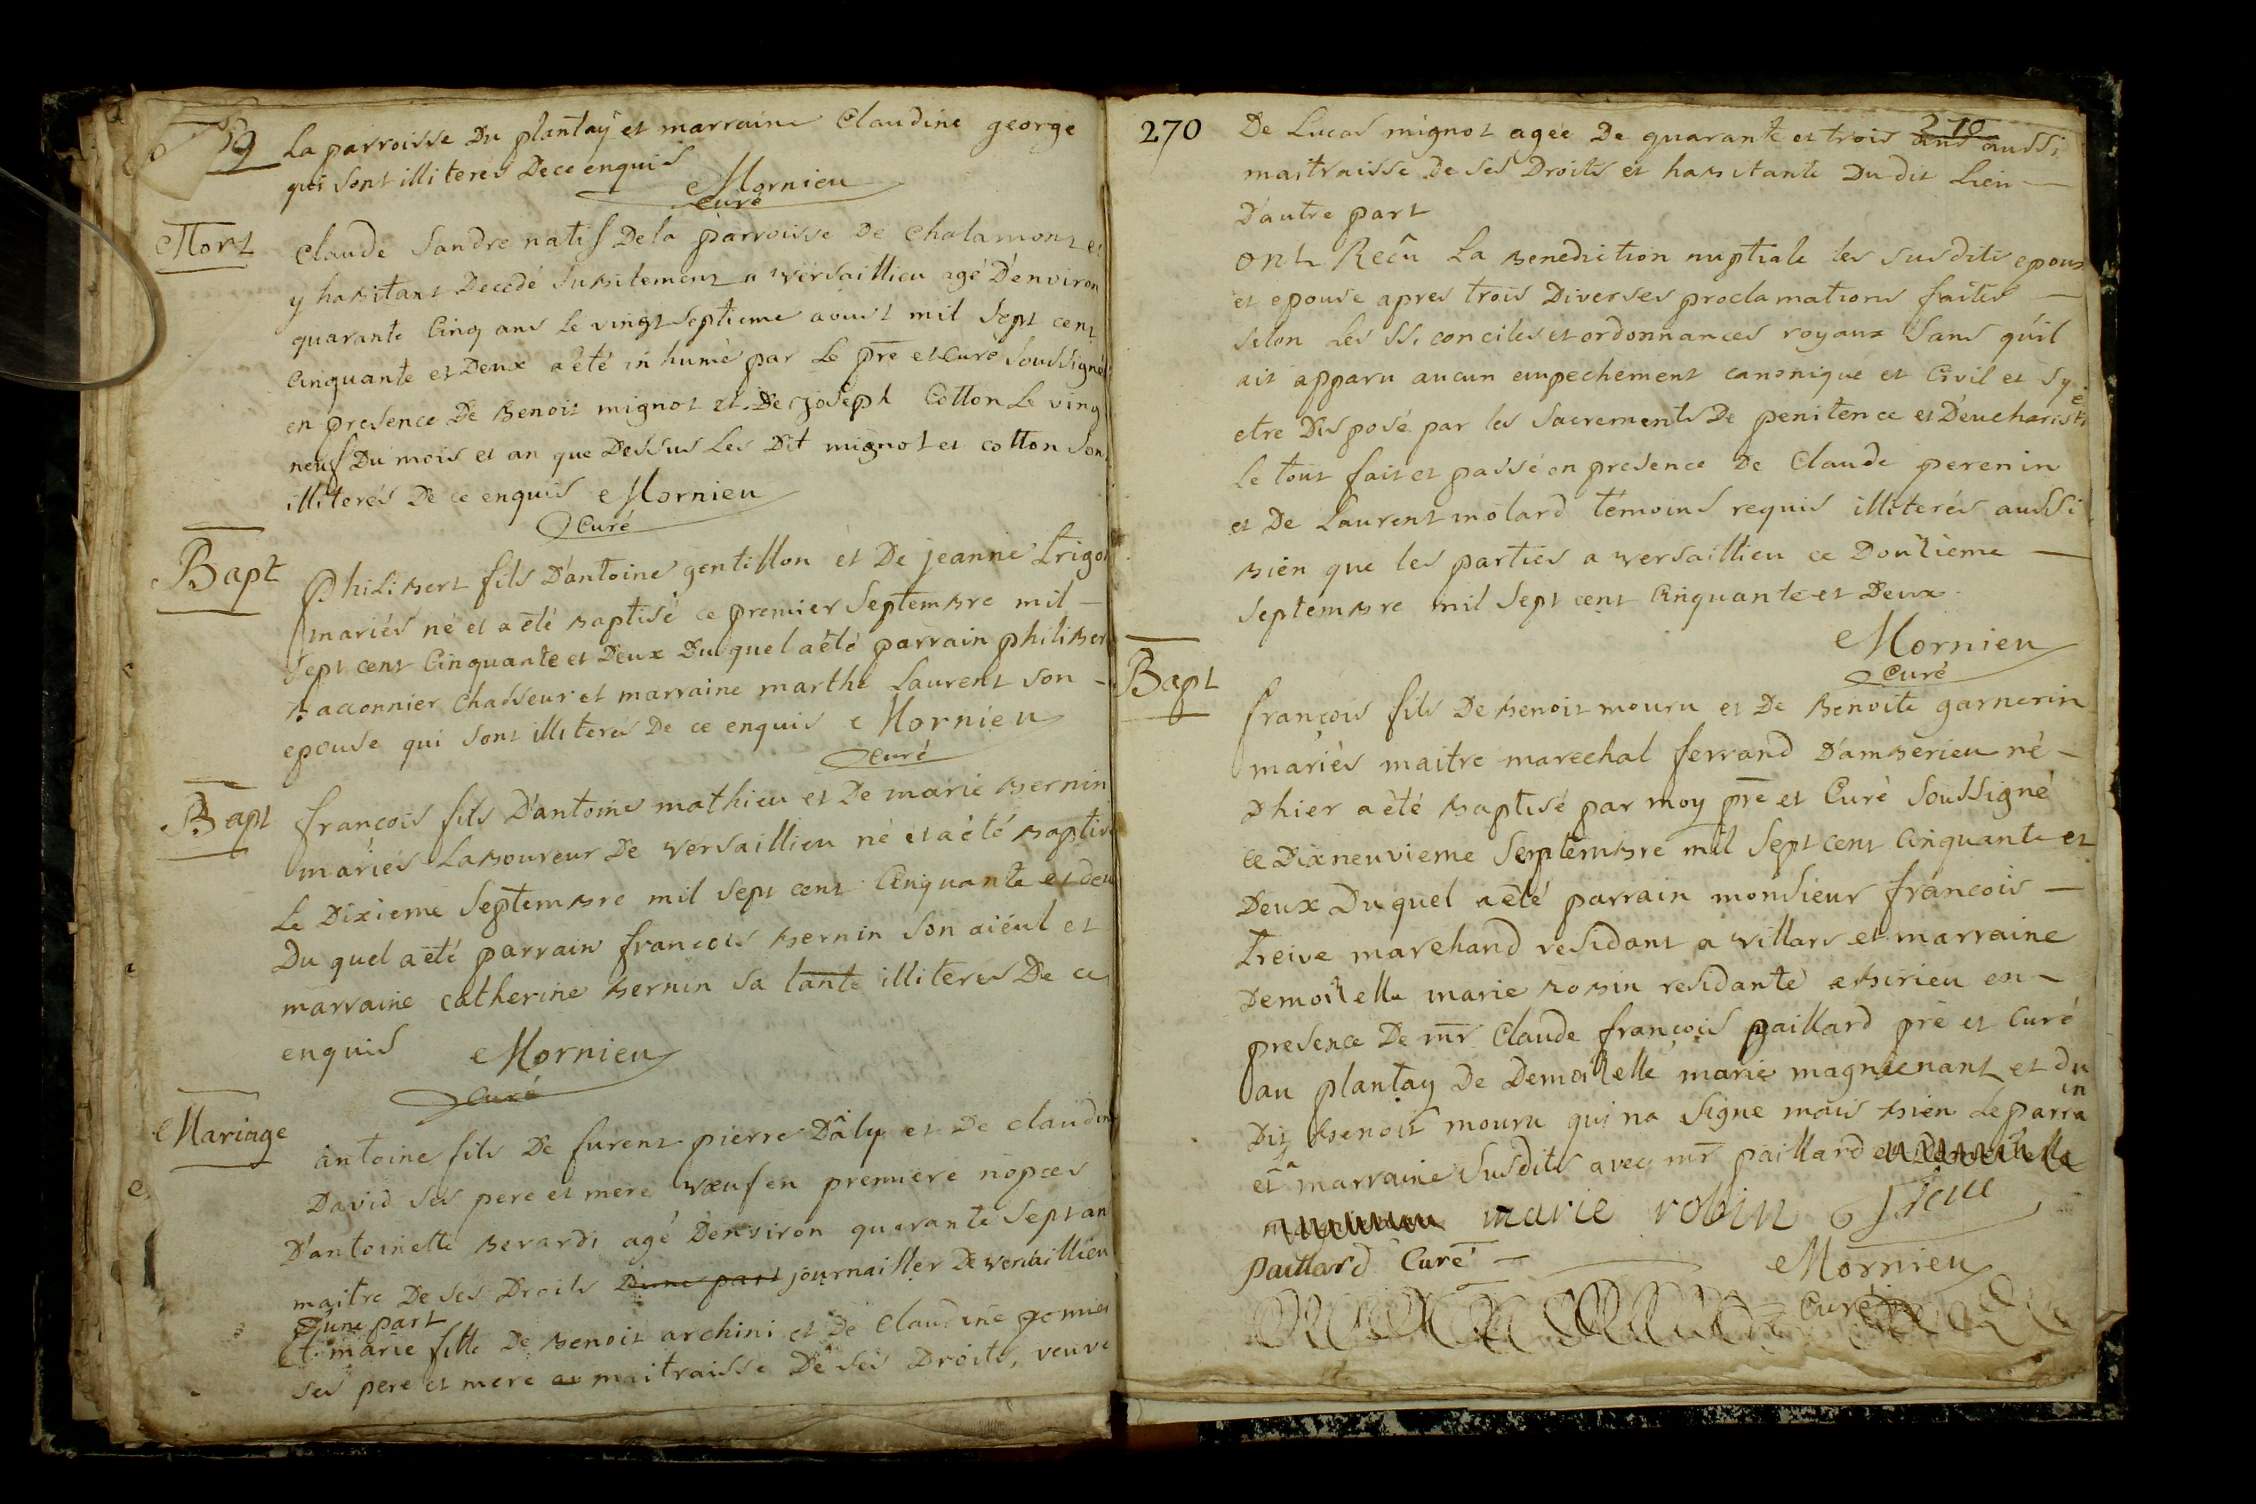 La parroisse Du plantay et marraine Claudine george
qui sont illiteres De ce enquis
Mornieu
Curé
Mort
Claude Sandre natif De la parroisse De Chalamont et
y habitant Decedé subitement a versaillieu agé D'environ
quarante Cinq ans le vingt septieme aoust mil Sept cent
Cinquante et Deux a été inhumé par Le pre et Curé Soussigné
en presence De Benoit mignot et De joseph Cotton Le ving
neuf Du mois et an que Dessus Les Dit mignot et cotton son
illiterés De ce enquis Mornieu
Curé
Bapt
Philibert fils D'antoine gentillon et De jeanne Trigot
mariés né et a été baptisé ce premier Septembre mil
Sept cent Cinquante et Deux Duquel a été parrain philiber
Baconnier Chasseur et marraine marthe Laurent son
epouse qui sont illiterés De ce enquis Mornieu
Curé
Bapt
françois fils D'antoine mathieu et De marie Bernin
mariés Laboureur De versaillieu né et a été Baptisé
Le Dixieme Septembre mil sept cent Cinquante et deu
Du quel a été parrain francois Bernin son aiéul et
marraine catherine Bernin sa tante illiteres De ce
enquis Mornieu
Curé
Mariage
antoine fils De furent pierre Dâly et De claudine
David ses pere et mere vœuf en premiere nopces
D'antoinette Berardi agé D'environ quarante Sept an
maitre De ses Droits D'une part journallier De versaillieu
D'une part
et marie fille De Benoit archini et De Claudine gomier
ses pere et mere maitraisse De ses Droits, veuve
270
270
De Lucas mignot agée De quarante et trois ans aussi
maitraisse De ses Droits et habitante Du dit Lieu
D'autre part
ont Reçû La benediction nuptiale les susdits epoux
et epouse apres trois Diverses proclamations faites
selon Les SS. conciles et ordonnances royaux Sans qu'il
ait apparu aucun empechement canonique et Civil et s'y
etre Disposé par les Sacrements De penitence et D'eucharistie
Le tout fait et passé en presence De Claude perenin
et De Laurent molard témoins requis illiterés aussi
bien que les parties a versaillieu ce Douzieme
Septembre mil Sept cent Cinquante et Deux.
Mornieu
Curé
Bapt
françois fils De Benoit mouru et De Benoite garnerin
mariés maitre marechal ferrand D'amberieu né
D hier a été baptisé par moy pre et Curé Soussigné
ce Dixneuvieme Septembre mil Sept cent Cinquante et
Deux Duquel a été parrain monsieur françois
Treive marchand residant a villars et marraine
Demoiselle marie Robin residante a birieu en
presence De mr Claude françois paillard pre et Curé
au plantay De Demoiselle marie magnienant et du
Dit Benoit mouru qui na Signe mais bien Le parrain
et marraine Susdits avec mr paillard
marie robin
paillard Curé
Mornieu
Curé